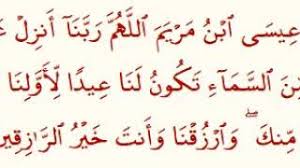 عِيسَى ٱبْنُ مَرْيَمَ ٱللَّهُمَّ رَبَّنَآ أَنزِلْ
مِّنَ ٱلسَّمَآءِ تَكُونُ لَنَا عِيدًا لِّأَوَّلِنَا
مِّنكَ ۖ وَٱرْزُقْنَا وَأَنتَ خَيْرُ ٱلرَّٰزِقِينَ